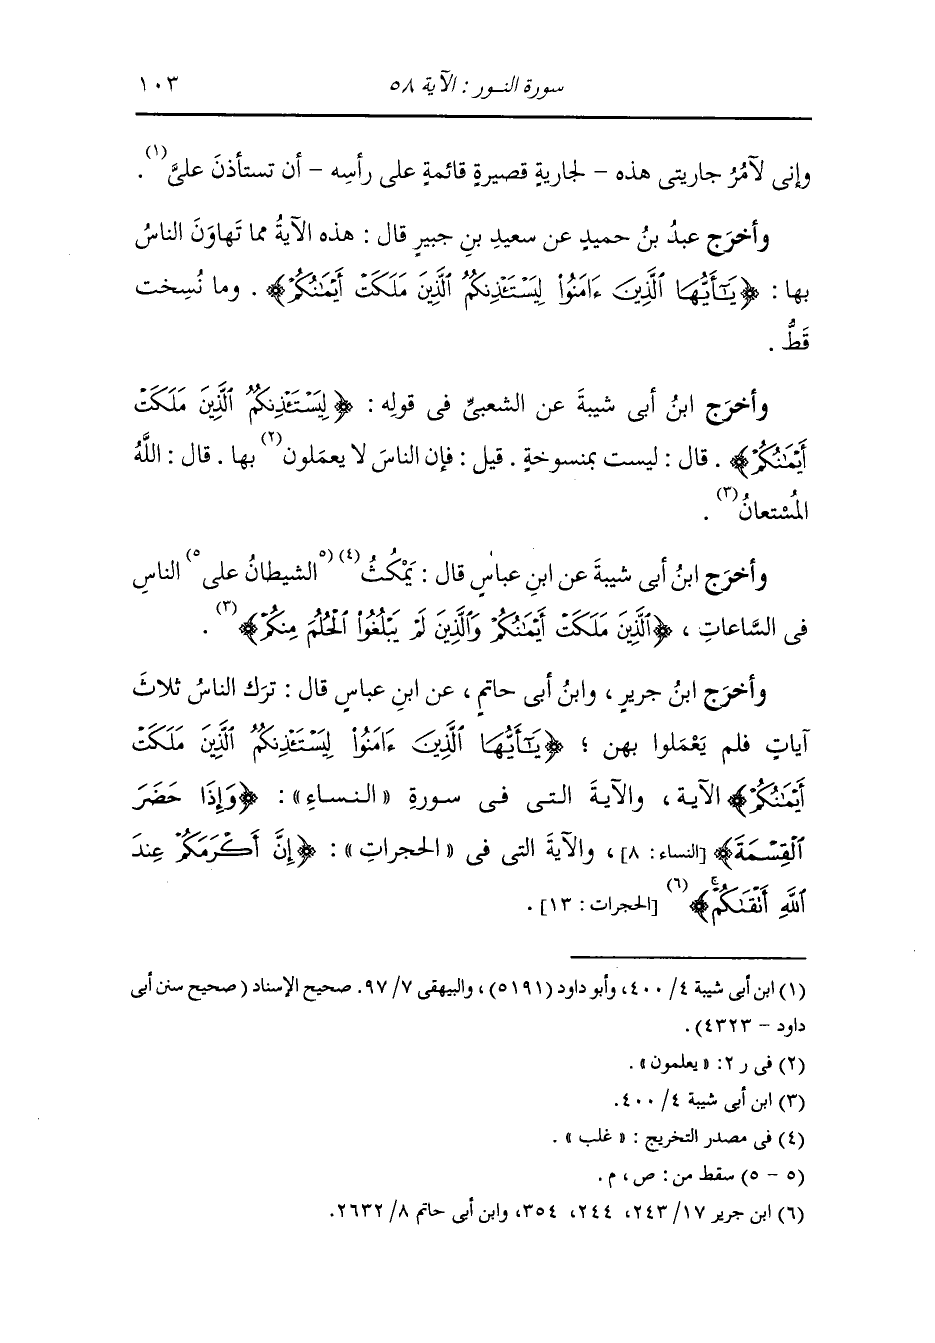 سورة النـور : الآية ٥٨
١٠٣
وإنى لآمُرُ جاريتى هذه - لجاريةٍ قصيرةٍ قائمةٍ على رأسِه - أن تستأذنَ علىَّ(١) .
وأخرَج عبدُ بنُ حميدٍ عن سعيدِ بنِ جبيرٍ قال : هذه الآيةُ مما تَهاوَنَ الناسُ
بها : ﴿يَٰٓأَيُّهَا ٱلَّذِينَ ءَامَنُوا۟ لِيَسْتَـْٔذِنكُمُ ٱلَّذِينَ مَلَكَتْ أَيْمَٰنُكُمْ﴾ . وما نُسِخت
قَطُّ .
وأخرَج ابنُ أبى شيبةَ عن الشعبىِّ فى قولِه : ﴿لِيَسْتَـْٔذِنكُمُ ٱلَّذِينَ مَلَكَتْ
أَيْمَٰنُكُمْ﴾ . قال : ليست بمنسوخةٍ . قيل : فإن الناسَ لا يعمَلون(٢) بها . قال : اللَّهُ
المُسْتعانُ(٣) .
وأخرَج ابنُ أبى شيبةَ عن ابنِ عباسٍ قال : يَمْكُثُ(٤) (٥الشيطانُ على٥) الناسِ
فى السَّاعاتِ ، ﴿ٱلَّذِينَ مَلَكَتْ أَيْمَٰنُكُمْ وَٱلَّذِينَ لَمْ يَبْلُغُوا۟ ٱلْحُلُمَ مِنكُمْ﴾(٣) .
وأخرَج ابنُ جريرٍ ، وابنُ أبى حاتمٍ ، عن ابنِ عباسٍ قال : ترَك الناسُ ثلاثَ
آياتٍ فلم يَعْمَلوا بهن ؛ ﴿يَٰٓأَيُّهَا ٱلَّذِينَ ءَامَنُوا۟ لِيَسْتَـْٔذِنكُمُ ٱلَّذِينَ مَلَكَتْ
أَيْمَٰنُكُمْ﴾ الآية ، والآيةَ التى فى سورةِ « النساءِ » : ﴿وَإِذَا حَضَرَ
ٱلْقِسْمَةَ﴾ [النساء : ٨] ، والآيةَ التى فى « الحجراتِ » : ﴿إِنَّ أَكْرَمَكُمْ عِندَ
ٱللَّهِ أَتْقَىٰكُمْۚ﴾(٦) [الحجرات : ١٣] .
(١) ابن أبى شيبة ٤/ ٤٠٠، وأبو داود (٥١٩١) ، والبيهقى ٧/ ٩٧. صحيح الإسناد ( صحيح سنن أبى
داود - ٤٣٢٣) .
(٢) فى ر ٢: « يعلمون » .
(٣) ابن أبى شيبة ٤/ ٤٠٠.
(٤) فى مصدر التخريج : « غلب » .
(٥ - ٥) سقط من : ص ، م .
(٦) ابن جرير ١٧/ ٢٤٣، ٢٤٤، ٣٥٤، وابن أبى حاتم ٨/ ٢٦٣٢.